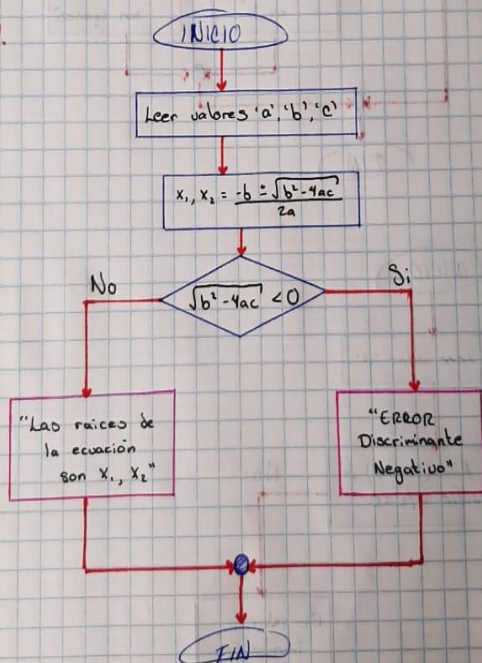 INICIO
Leer valores 'a', 'b', 'c'
x₁, x₂ = -b ± √b² - 4ac
2a
√b² - 4ac < 0
No
Si
"Las raices de
la ecuación
son x₁, x₂"
"ERROR
Discriminante
Negativo"
FIN